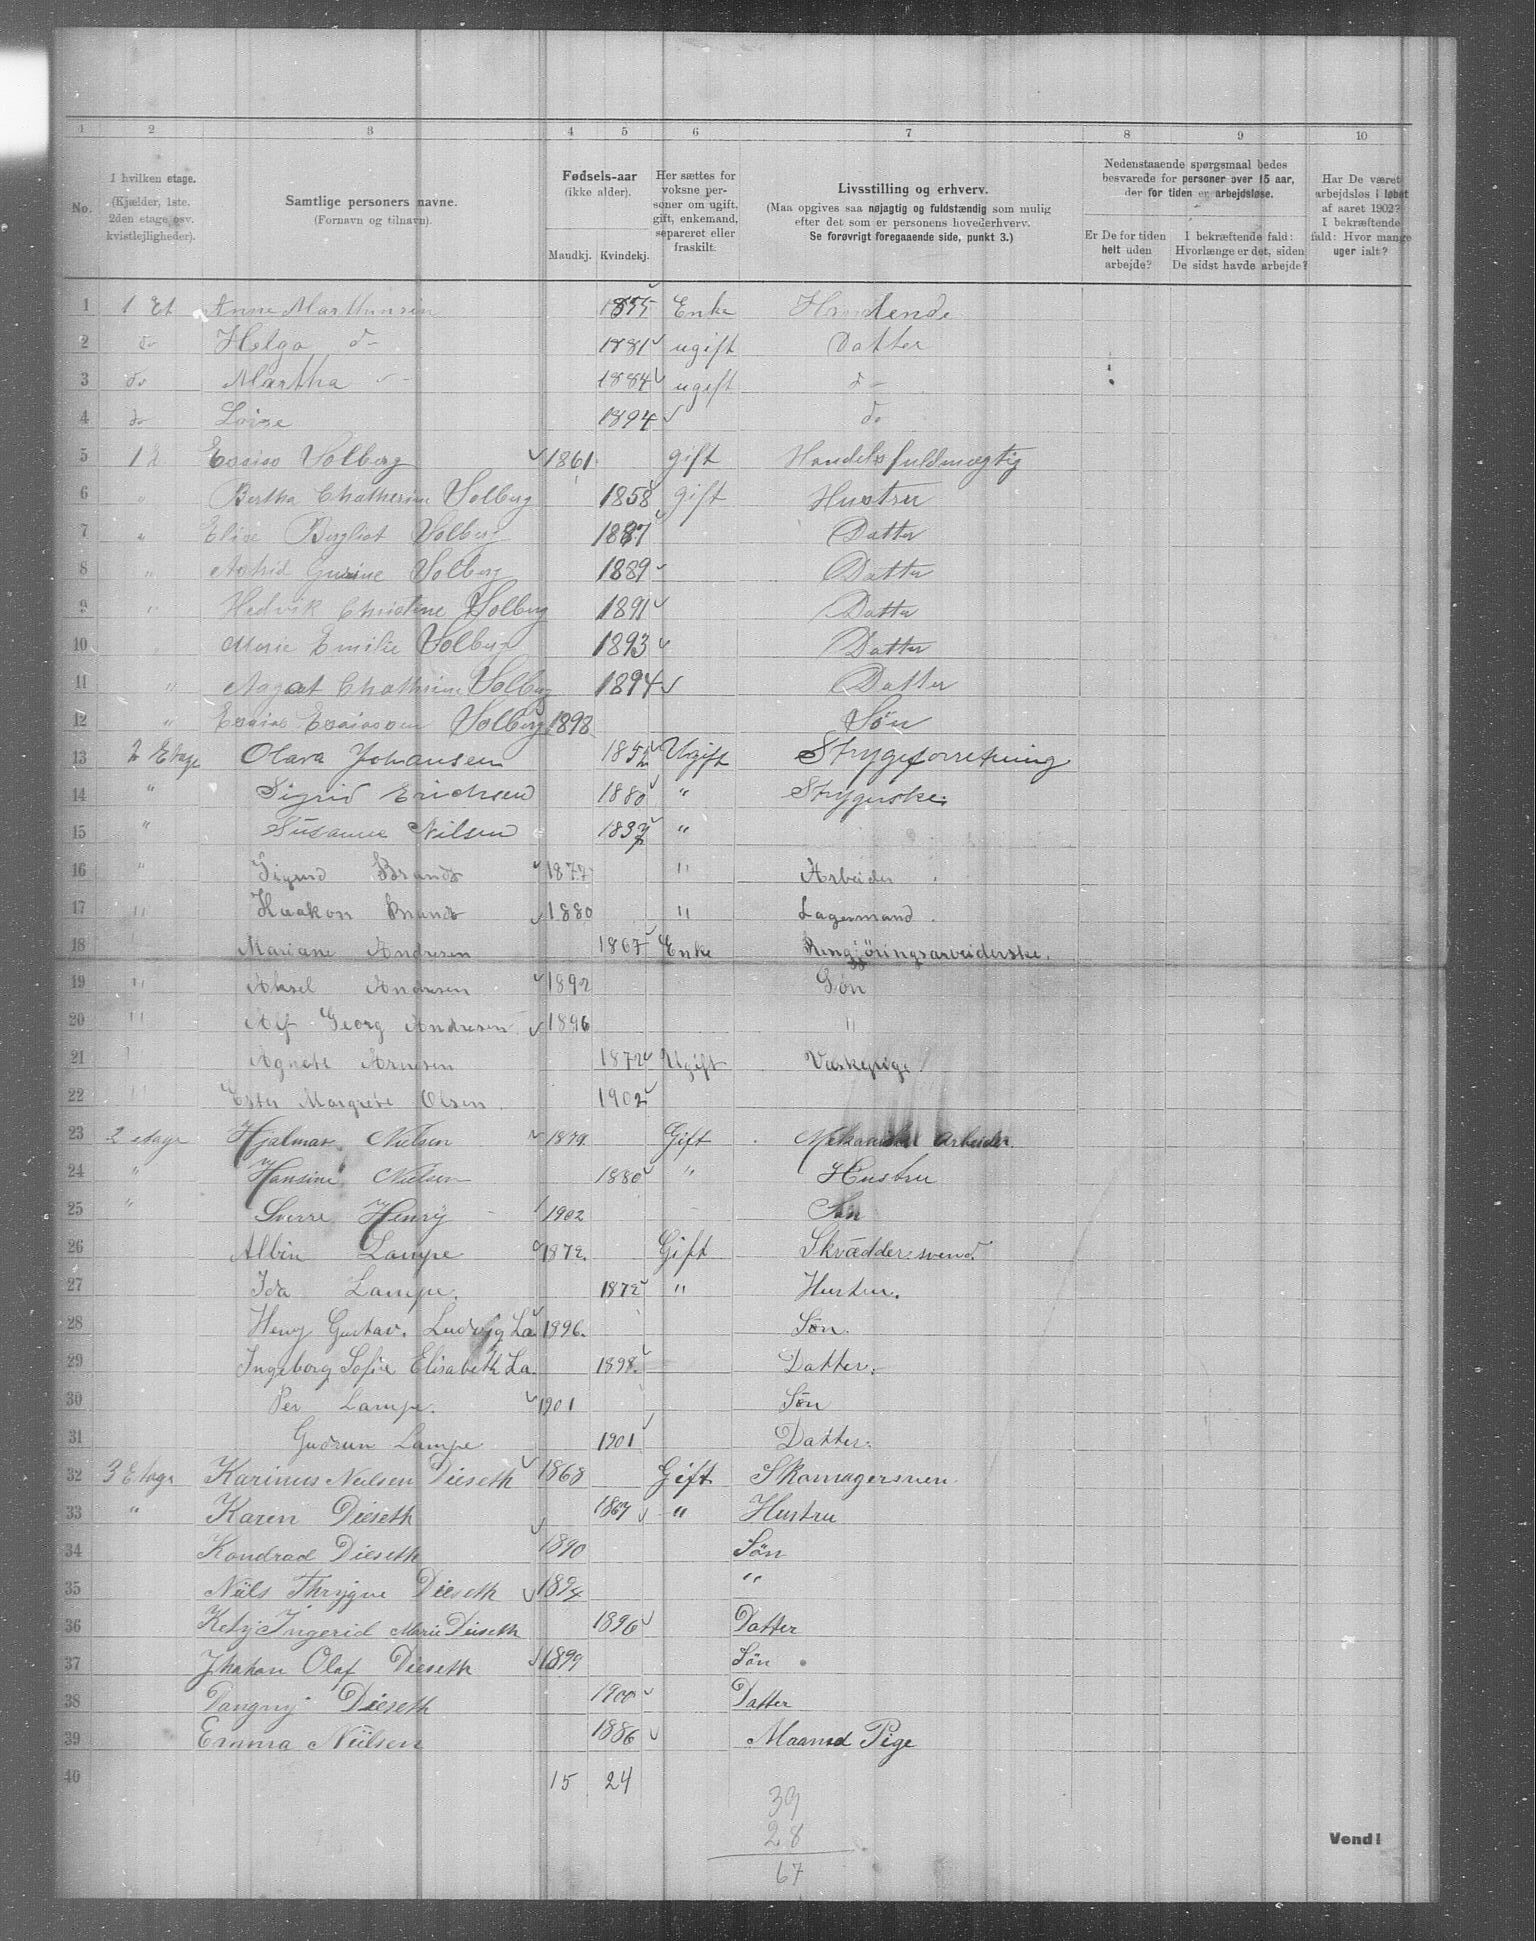 1 2 3 4 5 6 7 8 9 10
No.
I hvilken etage.
(Kjælder, 1ste.
2den etage osv.
kvistlejligheder).
Samtlige personers navne.
(Fornavn og tilnavn).
Fødsels-aar
(ikke alder).
Mandkj. Kvindekj.
Her sættes for
voksne per-
soner om ugift,
gift, enkemand,
separeret eller
fraskilt.
Livsstilling og erhverv.
(Maa opgives saa nøjagtig og fuldstændig som mulig
efter det som er personens hovederhverv.
Se forøvrigt foregaaende side, punkt 3.)
Nedenstaaende spørgsmaal bedes
besvarede for personer over 15 aar,
der for tiden er arbejdsløse.
Er De for tiden
helt uden
arbejde?
I bekræftende fald:
Hvorlænge er det, siden
De sidst havde arbejde?
Har De været
arbejdsløs i løbet
af aaret 1902?
I bekræftende
fald: Hvor mange
uger ialt?
1 1 Et Anne 1855 Enke
2 do Helga d- 1881 ugift Datter
3 do Martha - 1884 ugift d-
4 do Loise 1894 do
5 1 E Esaias Solberg 1861 gift Handelsfuldmægtig
6 " Bertha Chatherine Solberg 1858 gift Hustru
7 " Elise Bergliot Solberg 1887 Datter
8 " Astrid Solberg 1889 Datter
9 " Hedvik Christine Solberg 1891 Datter
10 " Marie Emilie Solberg 1893 Datter
11 " Chathrine Solberg 1894 Datter
12 " Esaias Esaiassen Solberg 1898 Søn
13 2 Etage Olava Johansen 1852 Ugift Strygeforretning
14 " Sigrid Erichsen 1880 " Strygerske
15 " Susanne Nilsen "
16 " Sigurd Brands 1877 " Arbeider
17 " Haakon Brands 1880 " Lagermand.
18 Mariane Andresen 1867 Enke Rengjøringsarbeiderske.
19 " Aksel Andresen 1892 Søn
20 " Alf Georg Andresen 1896 "
21 " Agnete Arnesen 1872 Ugift Vaskepige
22 " Ester Margrete Olsen 1902
23 2 etage Hjalmar Nielsen 1879 Gift Mekanisk Arbeider.
24 " Hansine Nielsen 1880 " Hustru
25 " Sverre Henry 1902 Søn
26 Albin Lampe 1872. Gift Skrædder:svend
27 Ida Lampe. 1872 " Hustru.
28 Henry Gustav. Ludvig La 1896. Søn.
29 Ingeborg Sofie Elisabeth La. 1898. Datter.
30 Per Lampe. 1901 Søn
31 Gudrun Lampe 1901 Datter.
32 3 Etage Karinus Neilsen Dieseth 1868 Gift Skomagersven
33 " Karen Dieseth 1867 " Hustru
34 Kondrad Dieseth 1890 Søn
35 Niils Thrygve Dieseth 1894 "
36 Ketij Ingerid Marie Dieseth 1896 Datter
37 Jhakan Olaf Dieseth 1899 Søn
38 Dangny Dieseth 1900 Datter
39 Emma Niilsen 1886 Maaned Pige
40 15 24
39
28
67
Vend!